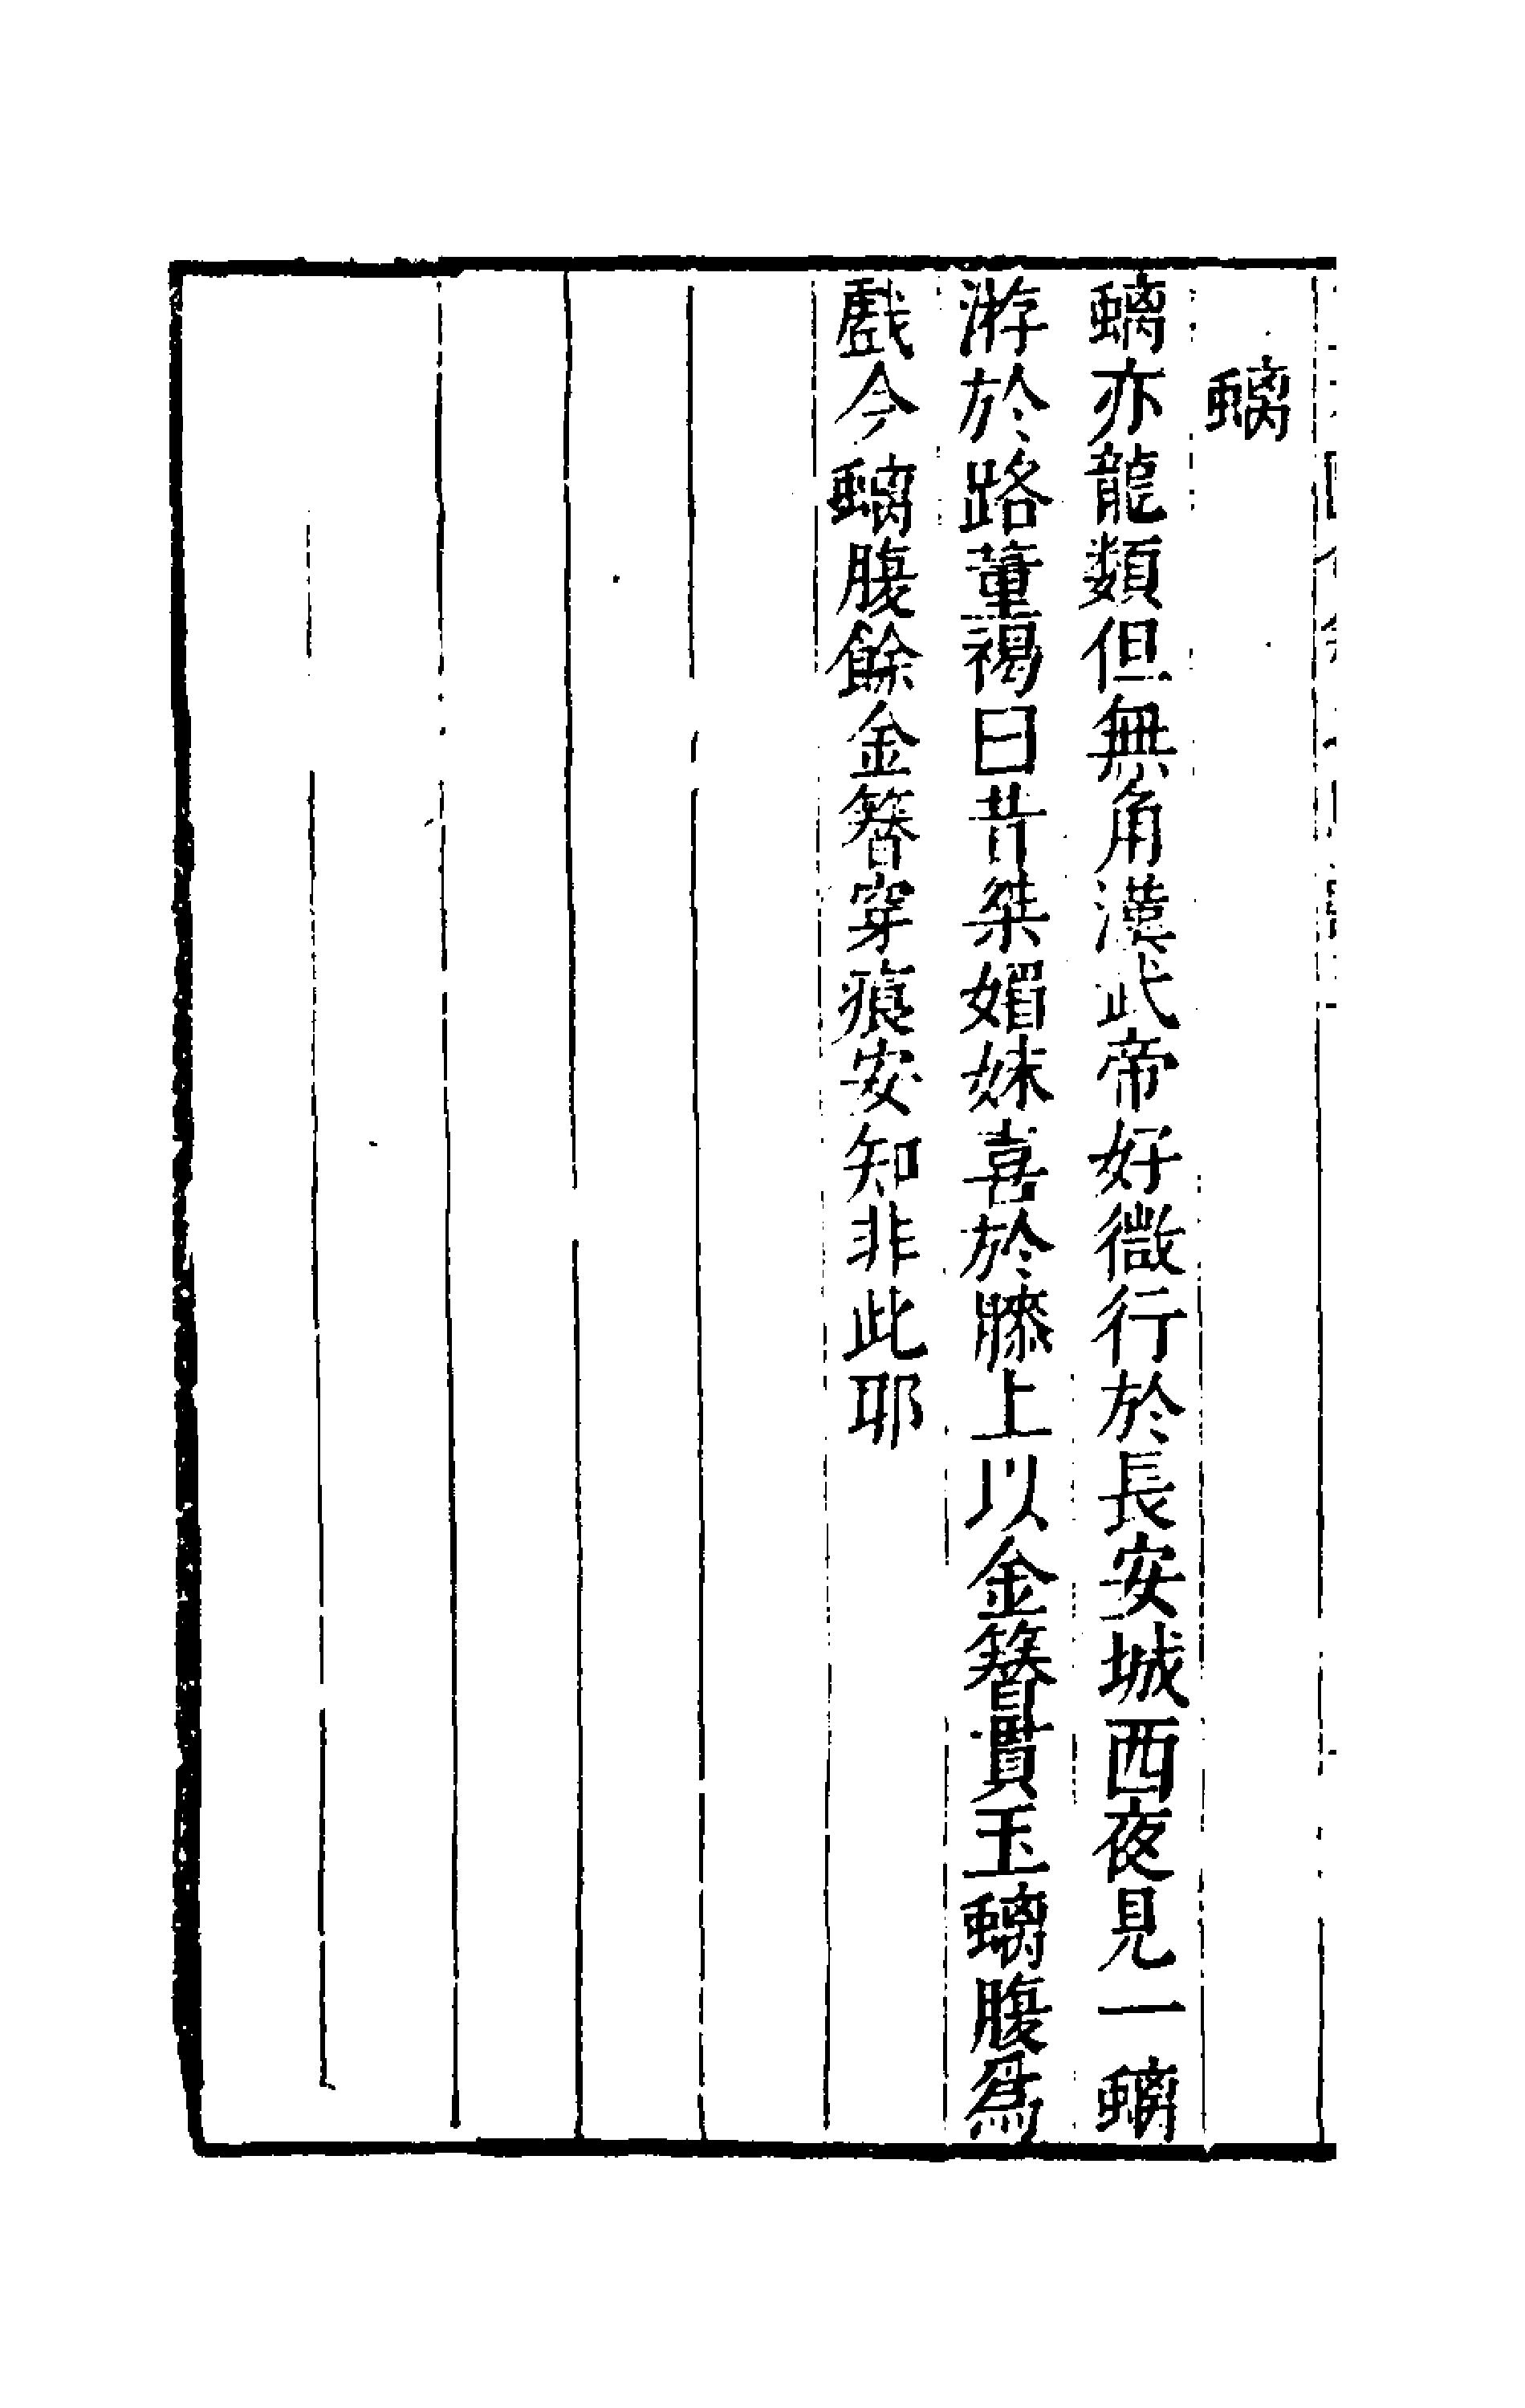 螭
螭亦龍類但無角漢武帝好微行於長安城西夜見一螭
游於路董褐曰昔桀媚妺喜於膝上以金簪貫玉螭腹爲
戲今螭腹餘金簪穿痕安知非此耶